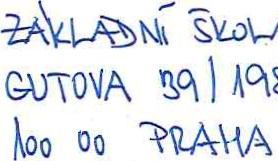 ZÁKLADNÍ ŠKOLA
GUTOVA 39/198
100 00 PRAHA